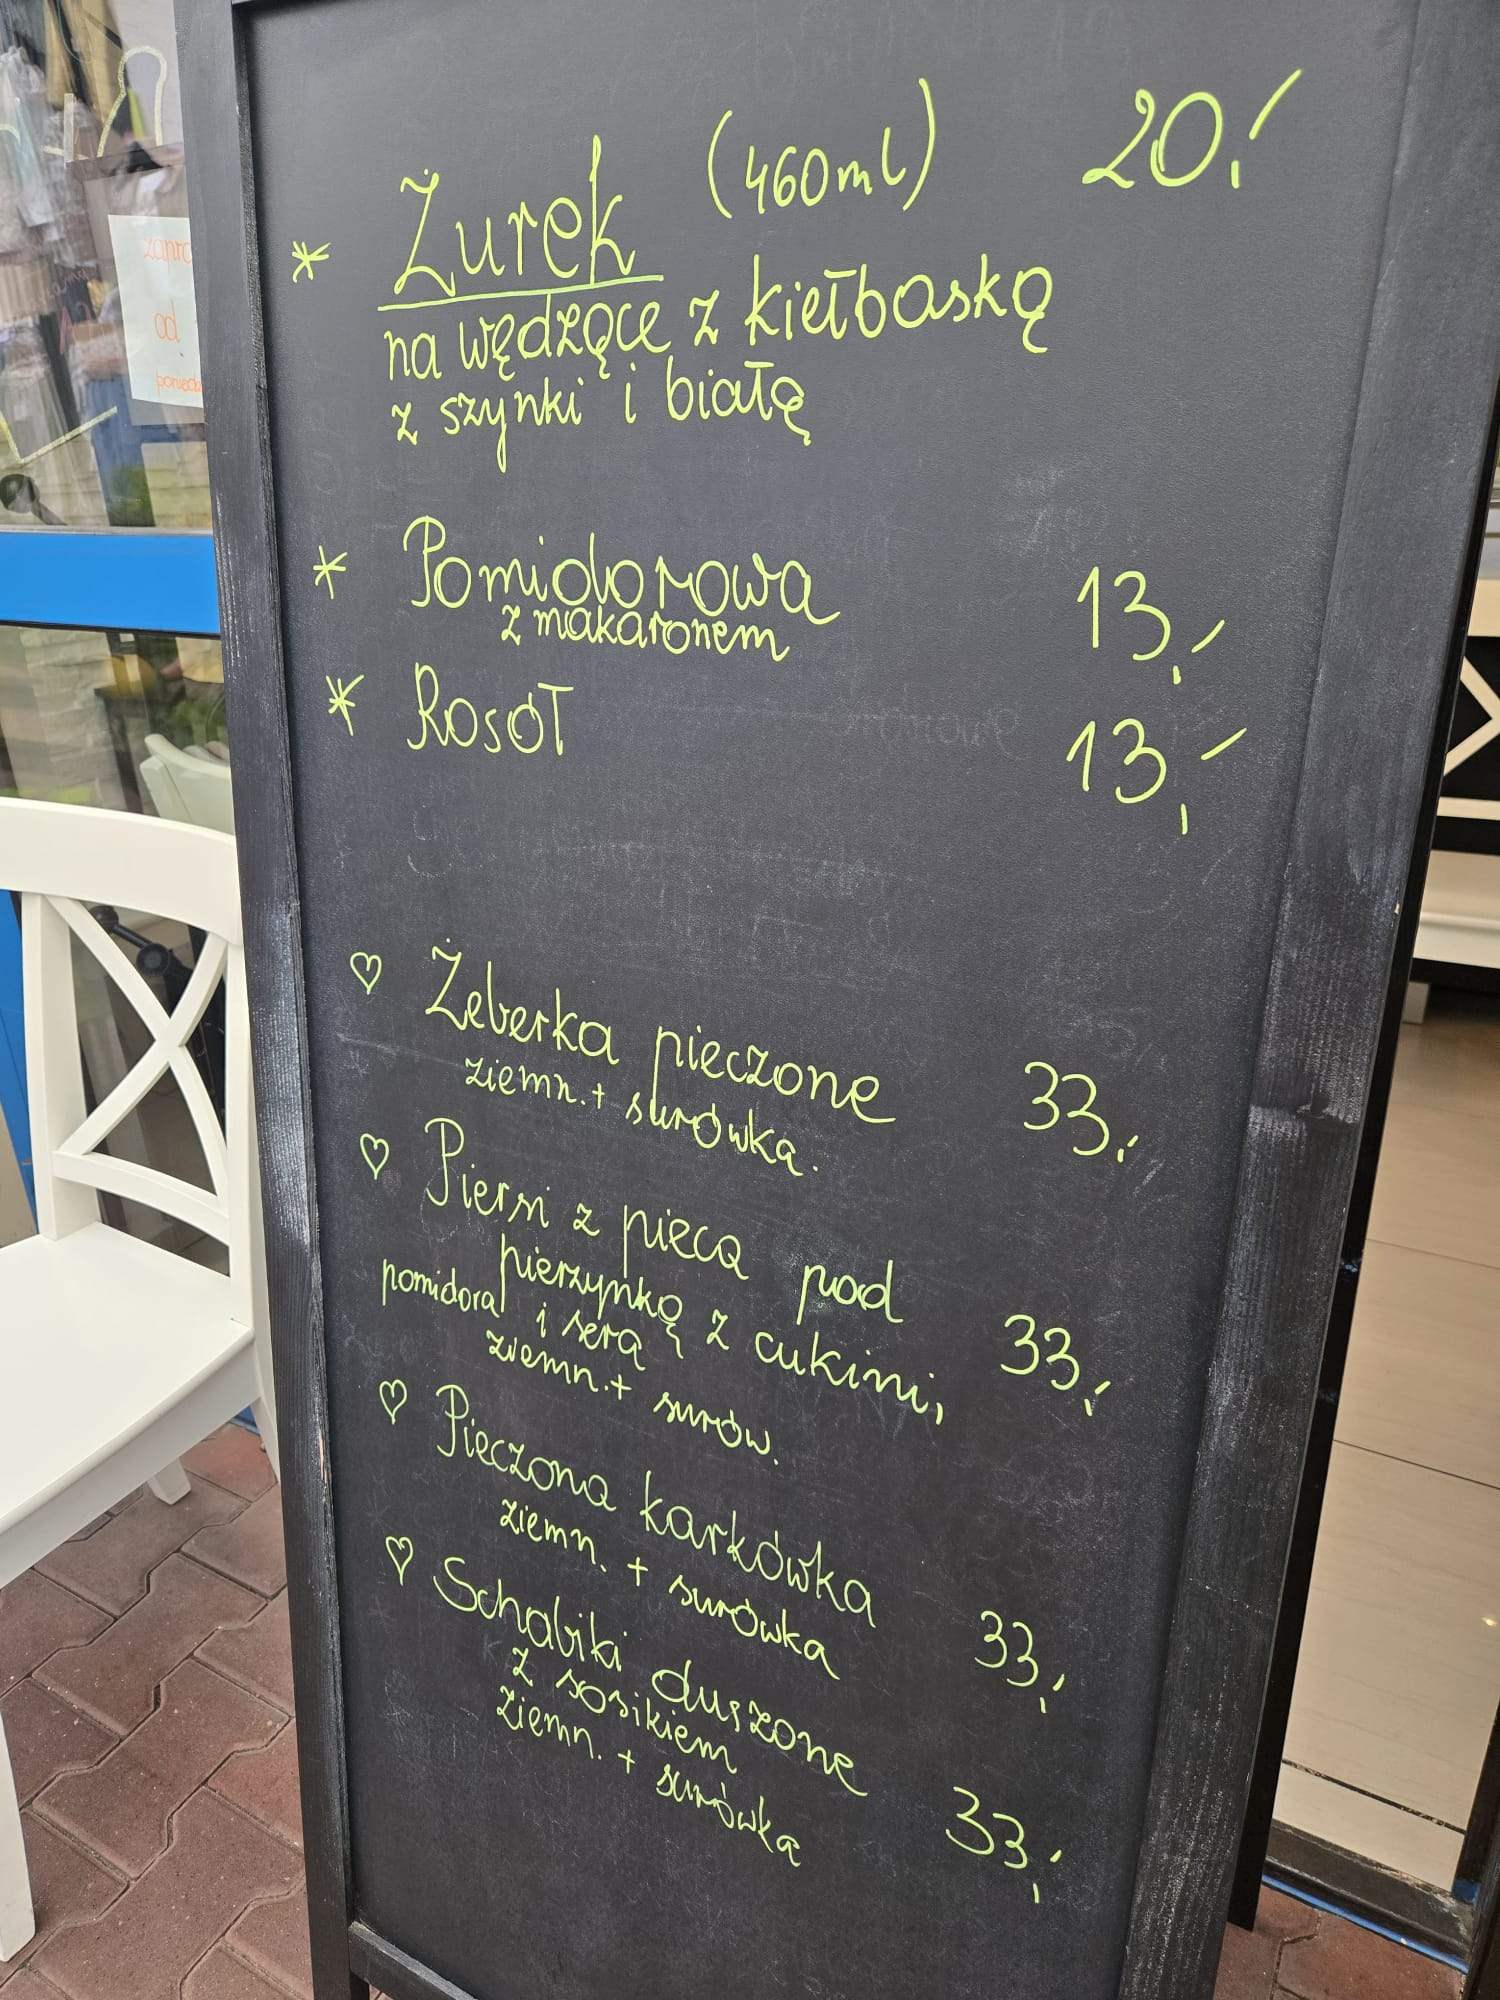 zapra
od
poniedz
* Żurek (460ml) 20,-
na wędzące z kiełbaską
z szynki i białą
* Pomidorowa 13,-
z makaronem
* Rosół 13,-
♡ Żeberka pieczone 33,-
ziemn. + surówka.
♡ Piersi z pieca pod
pierzynką z cukini, 33,-
pomidora i sera
ziemn. + surów.
♡ Pieczona karkówka 33,-
ziemn. + surówka
♡ Schabiki duszone 33,-
z sosikiem
ziemn. + surówka